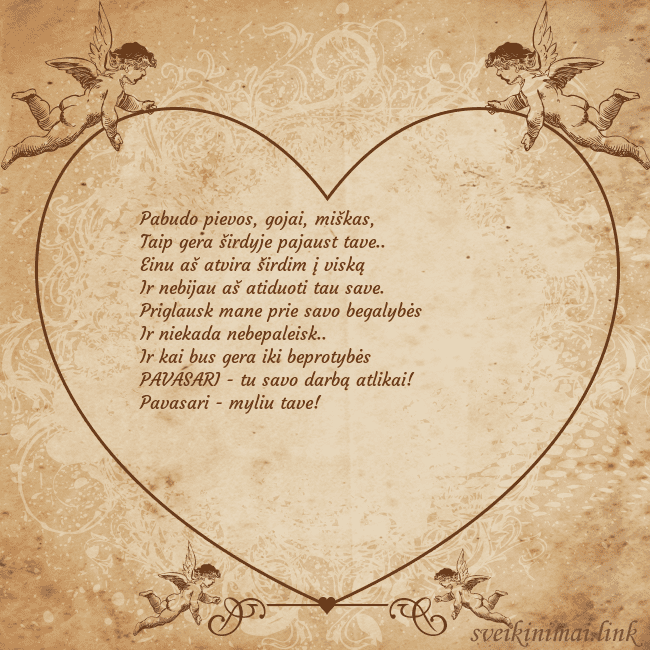 Pabudo pievos, gojai, miškas,
Taip gera širdyje pajaust tave..
Einu aš atvira širdim į viską
Ir nebijau aš atiduoti tau save.
Priglausk mane prie savo begalybės
Ir niekada nebepaleisk..
Ir kai bus gera iki beprotybės
PAVASARI - tu savo darbą atlikai!
Pavasari - myliu tave!
sveikinimai.link